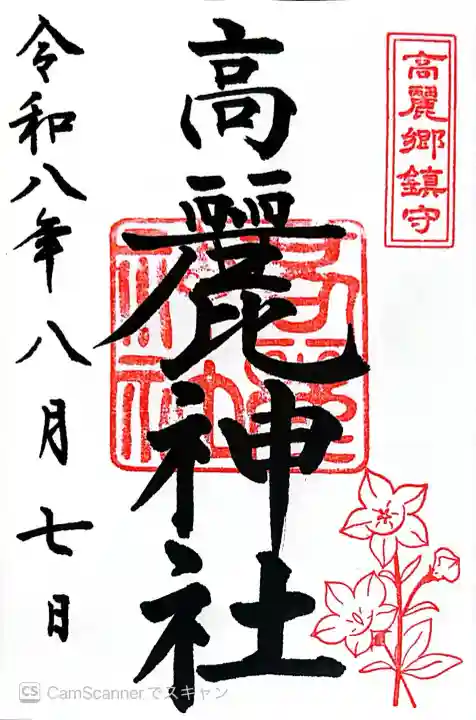 高麗郷鎮守
高麗神社
令和八年八月七日
CS CamScannerでスキャン